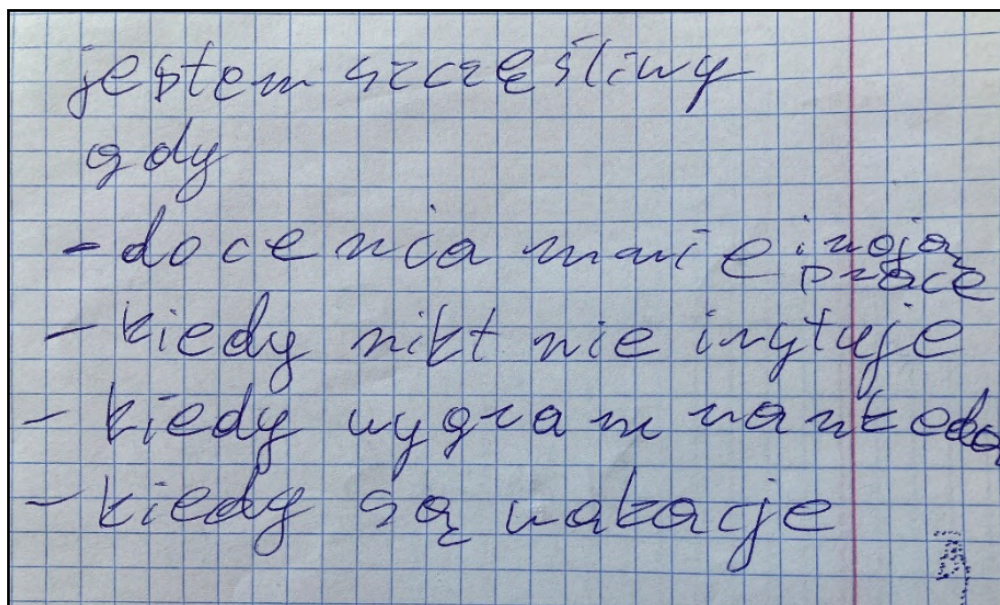 jestem szczęśliwy
gdy
- docenia mnie i moją pracę
- kiedy nikt nie irytuje
- kiedy wygram
- kiedy są wakacje